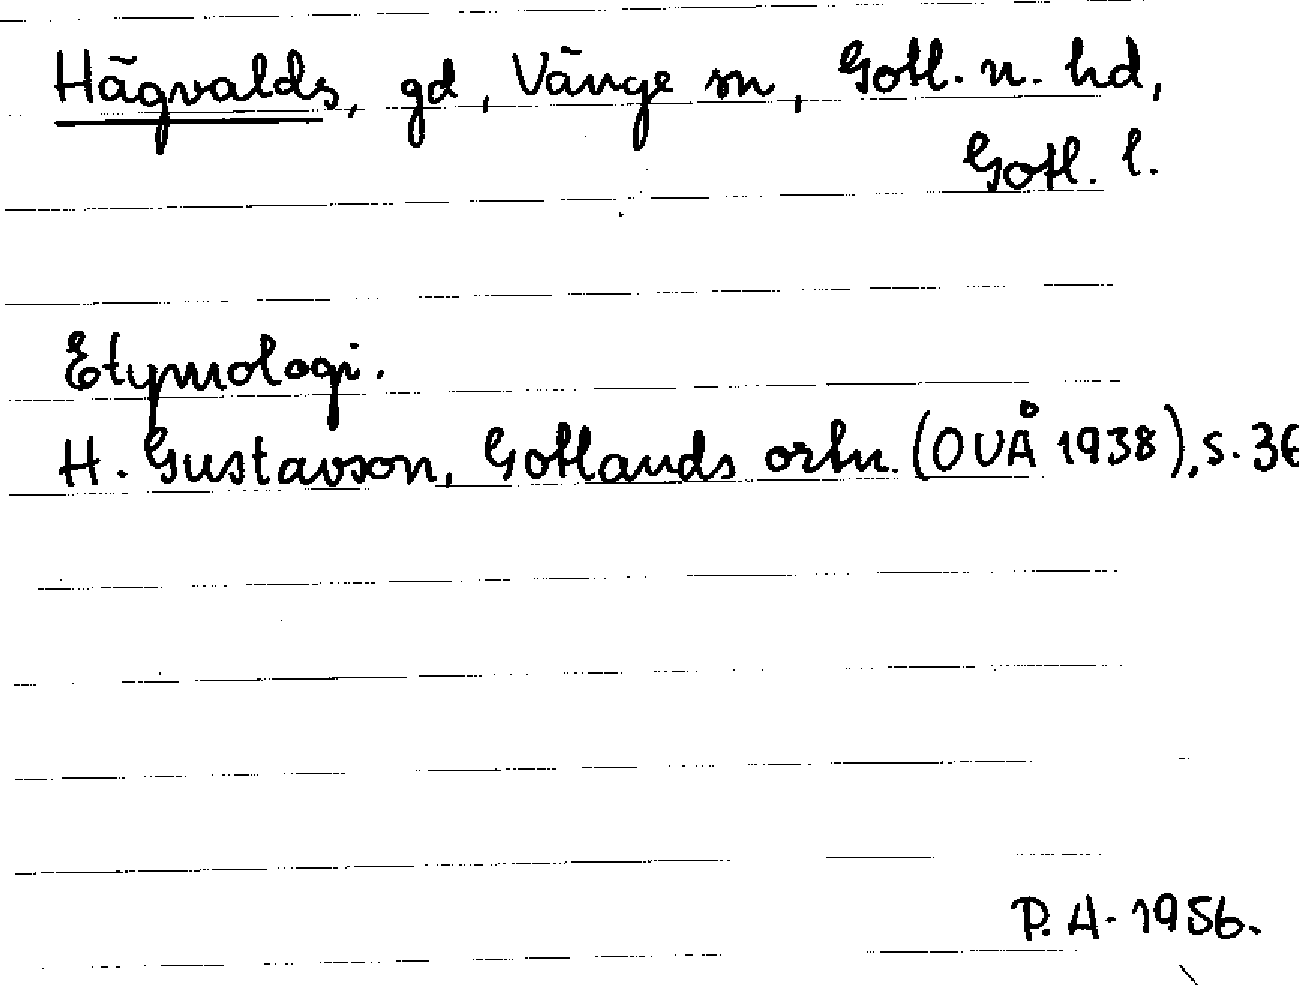 Hägvalds, gd, Vänge sn, Gotl. n. hd,
Gotl. l.
Etymologi.
H. Gustavson, Gotlands ortn. (OUÅ 1938), s. 36
P. A. 1956.